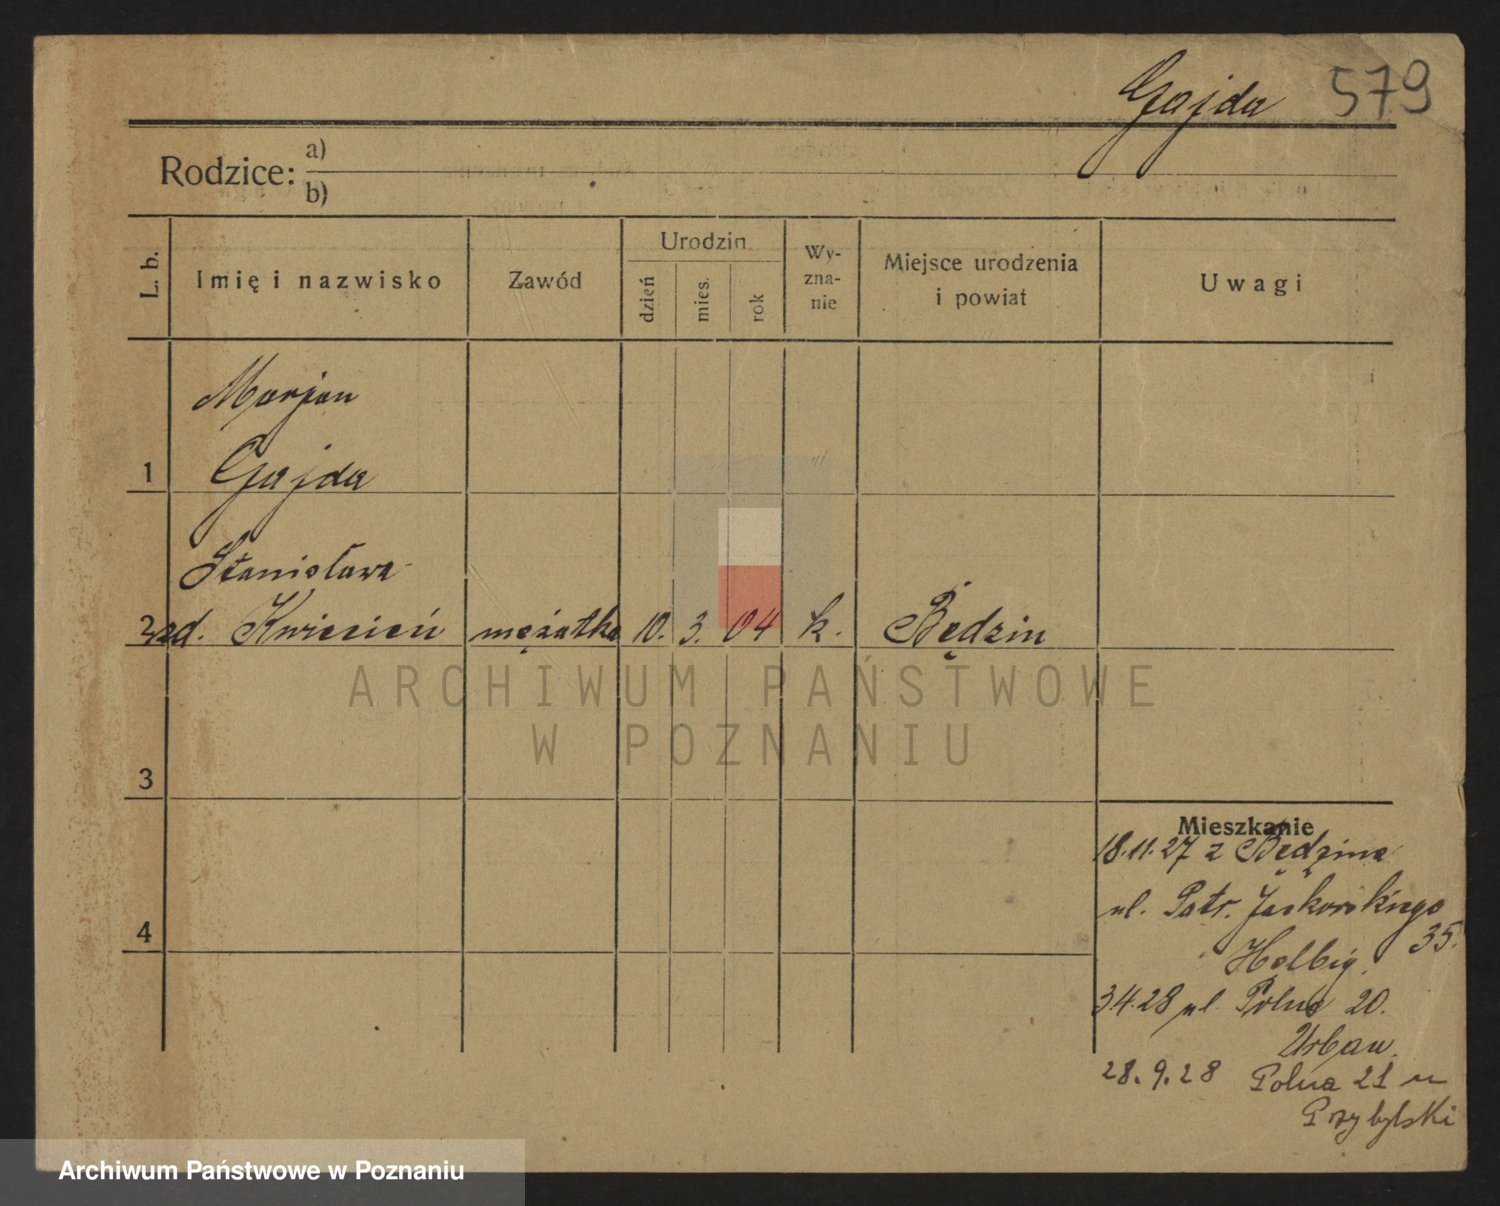 Gajda 579
Rodzice: a)
b)
L. b.
Imię i nazwisko
Zawód
Urodzin
dzień
mies.
rok
Wy-
zna-
nie
Miejsce urodzenia
i powiat
Uwagi
Marjan
1 Gajda
Stanisława
2 zd. Kwiecień mężatka 10. 3. 04 k. Będzin
3
4
Mieszkanie
18.11.27 z Będzina
ul. Patr. Jackowskiego
35.
Helbig.
3.4.28 ul Polna 20.
Urban.
28.9.28 Polna 21 u
Przybylski
ARCHIWUM PAŃSTWOWE
W POZNANIU
Archiwum Państwowe w Poznaniu